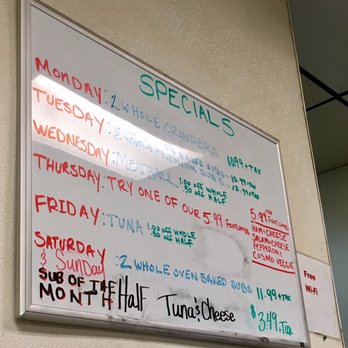 SPECIALS
MONDAY: 2 WHOLE GRINDERS 11.99 + TAX
TUESDAY: 2 10.99 + TAX
WEDNESDAY: MEATBALL 1.00 off WHOLE .50 off HALF 12.99 + TAX
THURSDAY: TRY ONE OF OUR 5.99 FOOTLONGS
5.99 FOOTLONGS
HAM & CHEESE
SALAMI & CHEESE
PEPPERONI
COSMO VEGGIE
FRIDAY: TUNA 1.00 off WHOLE .50 off HALF
SATURDAY & SUNDAY: 2 WHOLE OVEN BAKED SUBS 11.99 + TAX
SUB OF THE MONTH Half Tuna & Cheese $3.49 + TAX
Free
Wi-Fi